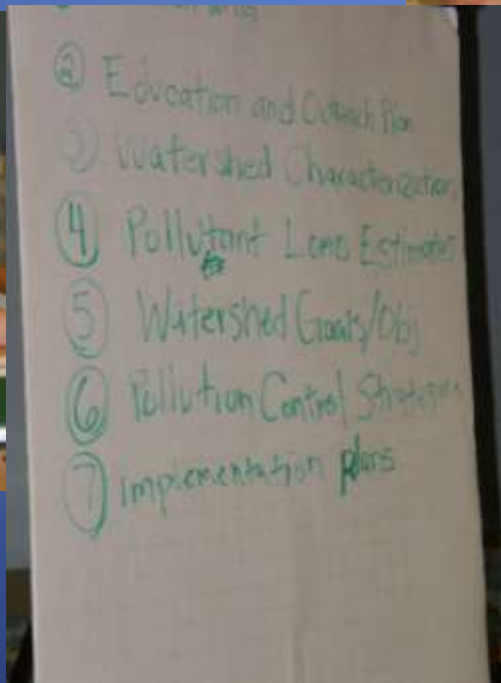 ② Education and Outreach Plan
③ Watershed Characterization
④ Pollutant Load Estimates
⑤ Watershed Goals/Obj
⑥ Pollution Control Strategies
⑦ implementation plans